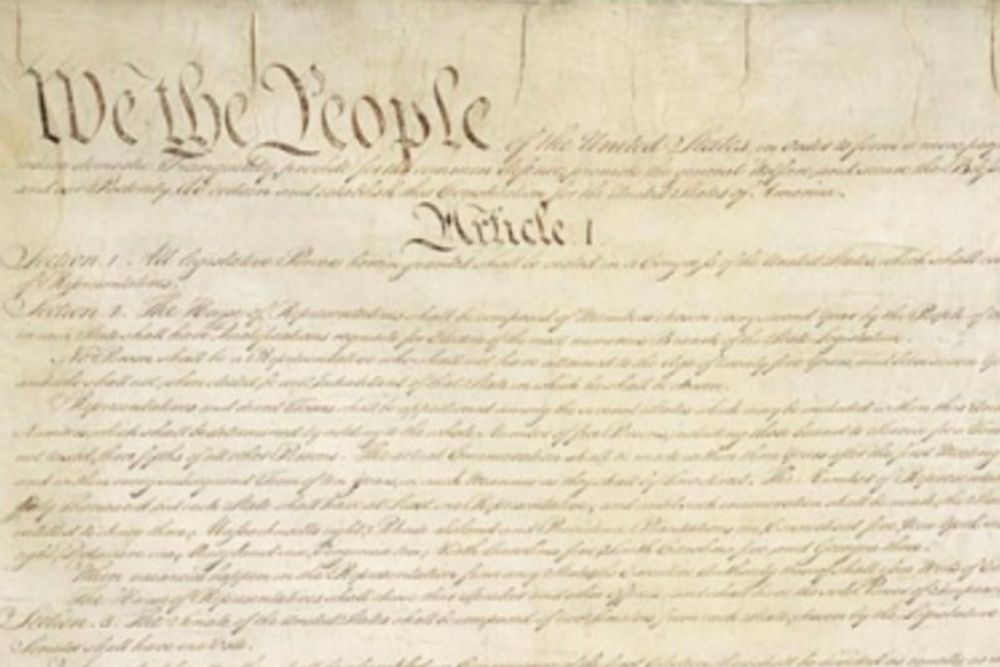 We the People of the United States, in Order to form a more
domestic Tranquility, provide for the common defence, promote the general Welfare, and secure the
and our Posterity, do ordain and establish this Constitution for the United States of America.
Article I
Section 1. All legislative Powers herein granted shall be vested in a Congress of the United States, which shall
of Representatives.
Section 2. The House of Representatives shall be composed of Members chosen every second Year by the People of
in each State shall have Qualifications requisite for Electors of the most numerous Branch of the State Legislature.
No Person shall be a Representative who shall not have attained to the Age of twenty five Years, and been seven
and who shall not, when elected, be an Inhabitant of that State in which he shall be chosen.
Representatives and direct Taxes shall be apportioned among the several States which may be included within this
which shall be determined by adding to the whole Number of free Persons, including those bound to Service for a
not taxed, three fifths of all other Persons. The actual Enumeration shall be made within three Years after the first Meeting
and within every subsequent Term of ten Years, in such Manner as they shall by Law direct. The Number of Representatives
each State shall have at Least one Representative; and until such enumeration shall be made, the
entitled to chuse three, Massachusetts eight, Rhode Island and Providence Plantations one, Connecticut five, New York
eight, Delaware one, Maryland six, Virginia ten, North Carolina five, South Carolina five, and Georgia three.
When vacancies happen in the Representation from any State, the Executive Authority thereof shall issue Writs of
The House of Representatives shall chuse their Speaker and other Officers; and shall have the sole Power of
Section. 3. The Senate of the United States shall be composed of two Senators from each State, chosen by the Legislature
Senator shall have one Vote.